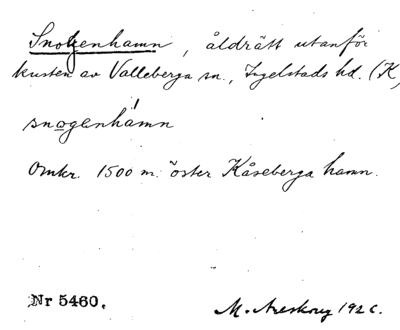 Snogenhamn, åldrätt utanför
kusten av Valleberga sn., Ingelstads hd. (K,
snogenhamn
Omkr. 1500 m. öster Kåseberga hamn.
Nr 5460. M. Areskoug 1926.